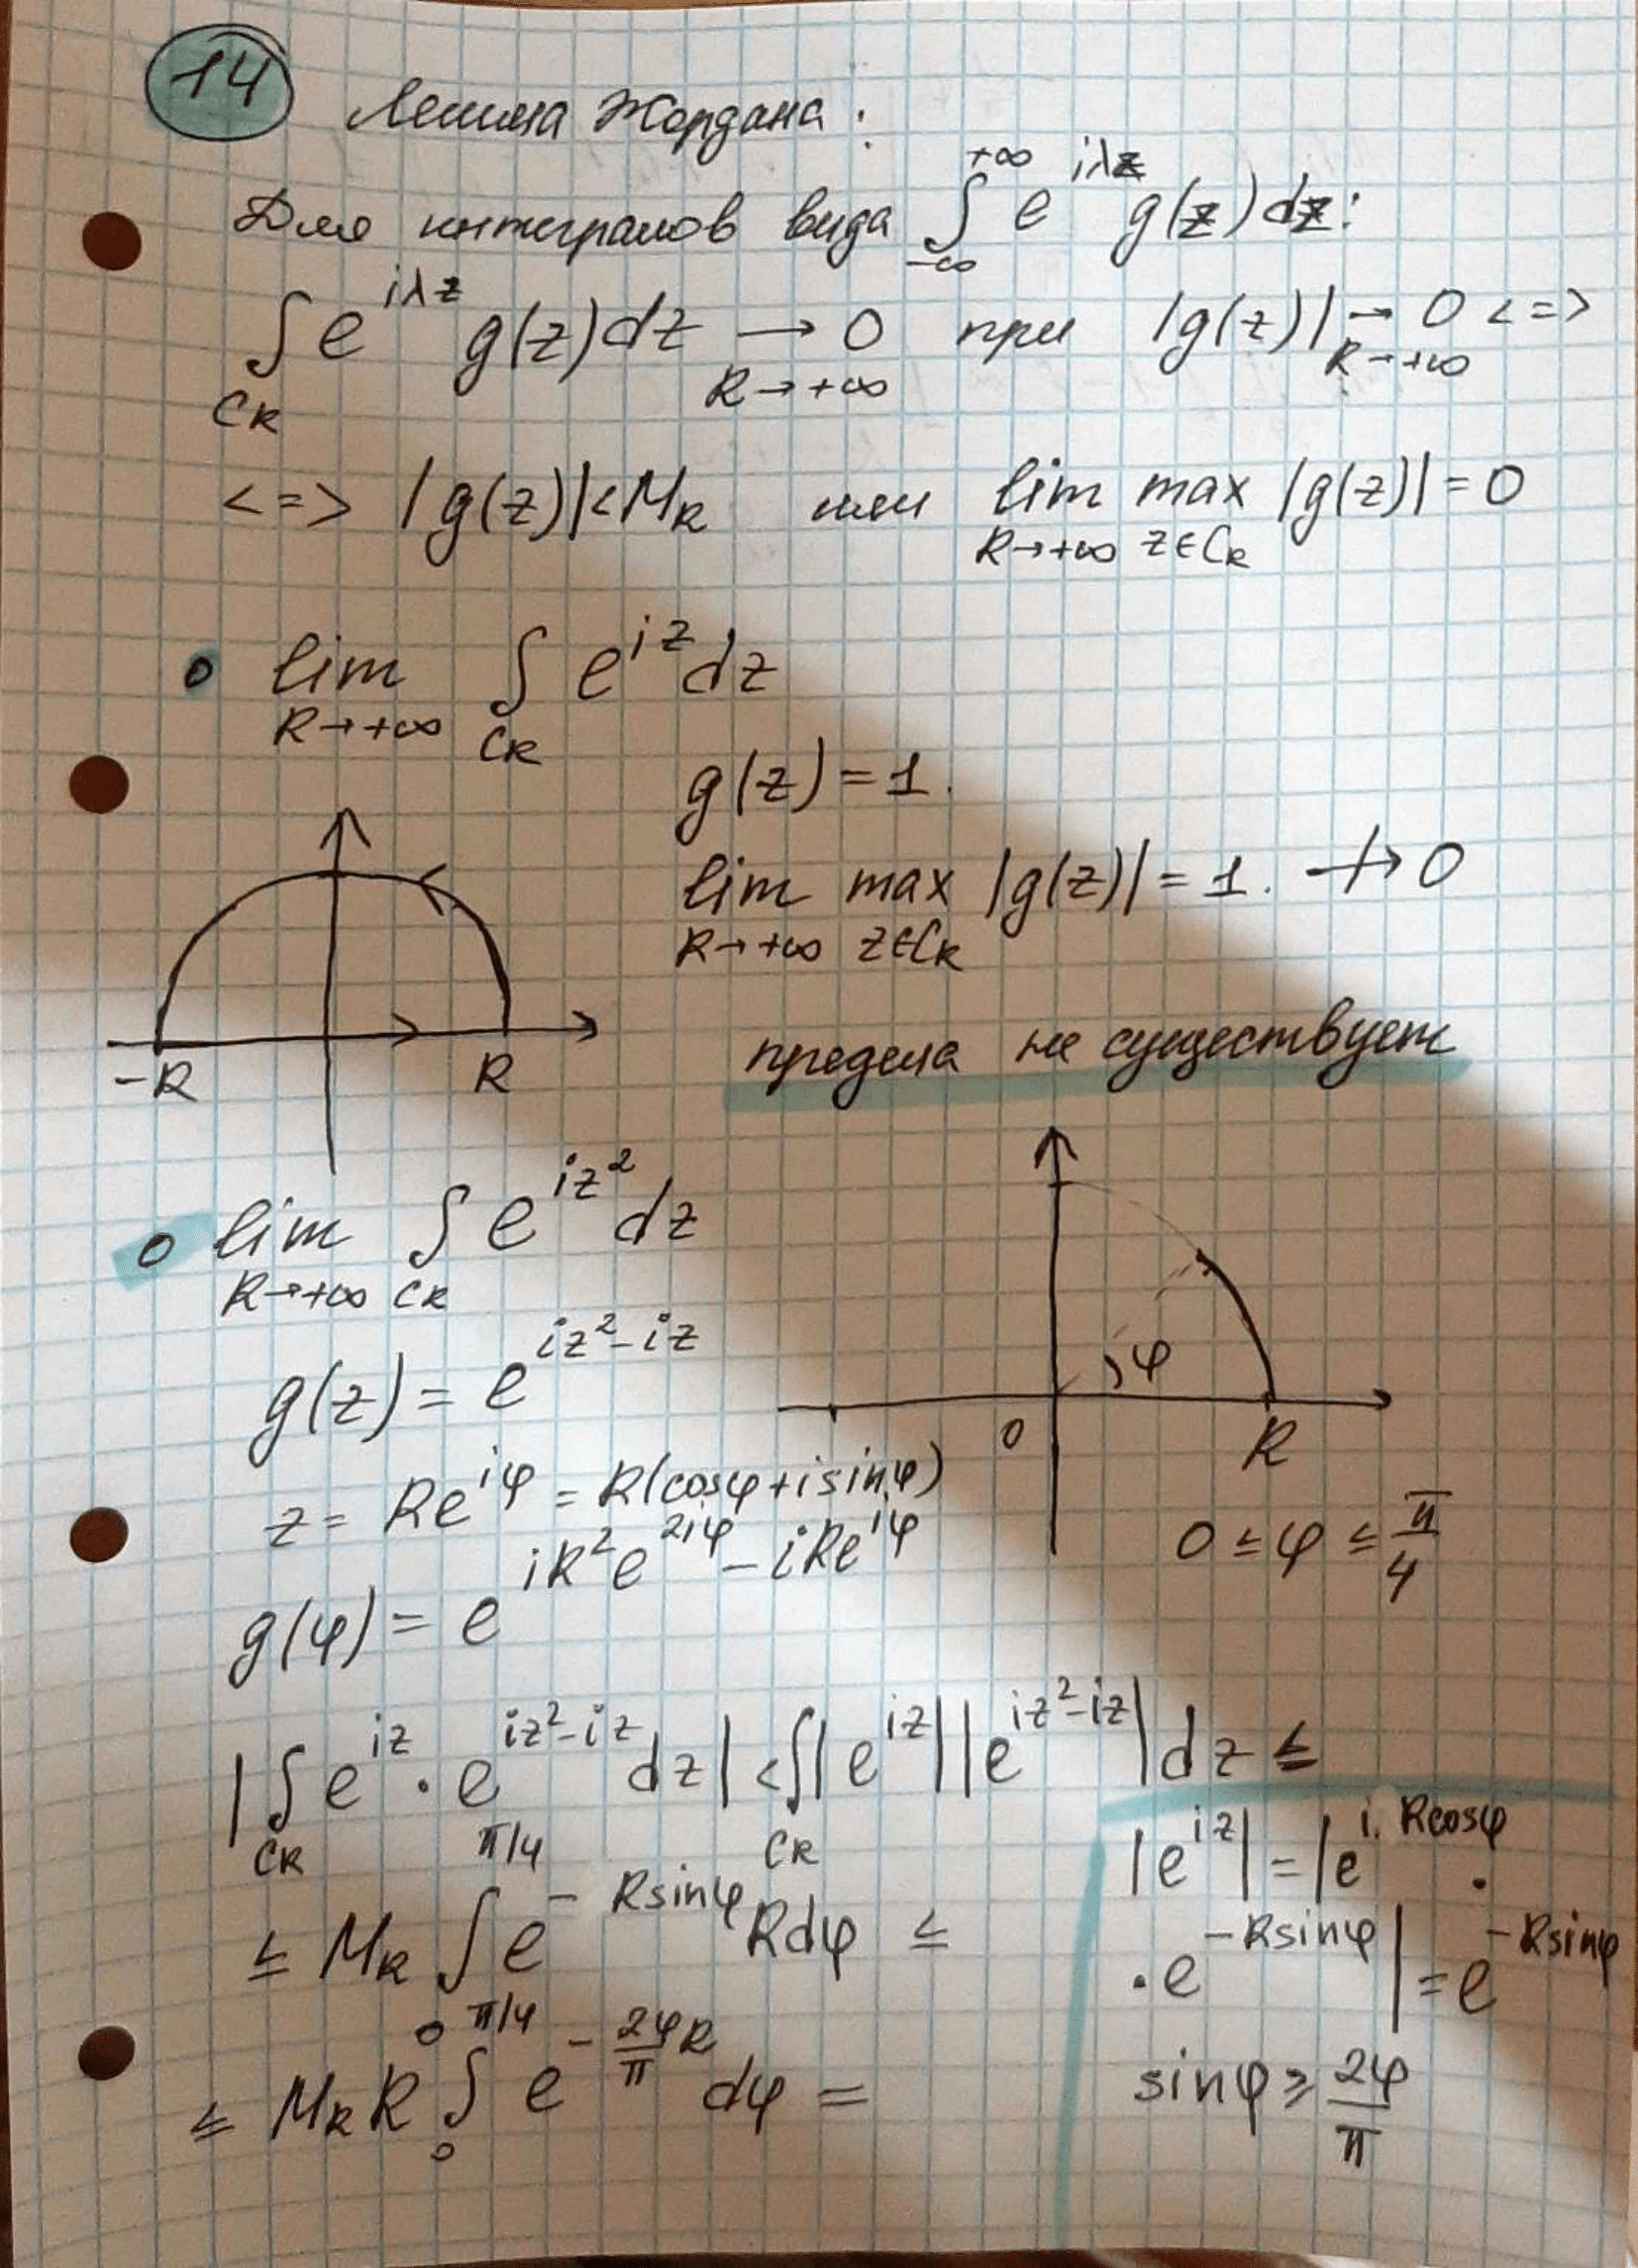 14 Лемма Жордана:
Для интегралов вида ∫_{-∞}^{+∞} e^{iλz} g(z)dz:
∫_{C_R} e^{iλz} g(z)dz → 0 при |g(z)| → 0 <=>
R→+∞ R→+∞
<=> |g(z)|<M_R или lim max |g(z)| = 0
R→+∞ z∈C_R
o lim ∫ e^{iz} dz
R→+∞ C_R
g(z) = 1.
lim max |g(z)| = 1. ↛ 0
R→+∞ z∈C_R
-R R
предела не существует
o lim ∫ e^{iz^2} dz
R→+∞ C_R
g(z) = e^{iz^2-iz}
φ
0 R
z = Re^{iφ} = R(cosφ+isinφ)
0 ≤ φ ≤ π/4
g(φ) = e^{iR^2e^{2iφ} - iRe^{iφ}}
|∫_{C_R} e^{iz} · e^{iz^2-iz} dz| < ∫_{C_R} |e^{iz}||e^{iz^2-iz}|dz ≤
≤ M_R ∫_0^{π/4} e^{-Rsinφ} Rdφ ≤
≤ M_R R ∫_0^{π/4} e^{-\frac{2φ}{π}R} dφ =
|e^{iz}| = |e^{i·Rcosφ} ·
· e^{-Rsinφ}| = e^{-Rsinφ}
sinφ ≥ \frac{2φ}{π}